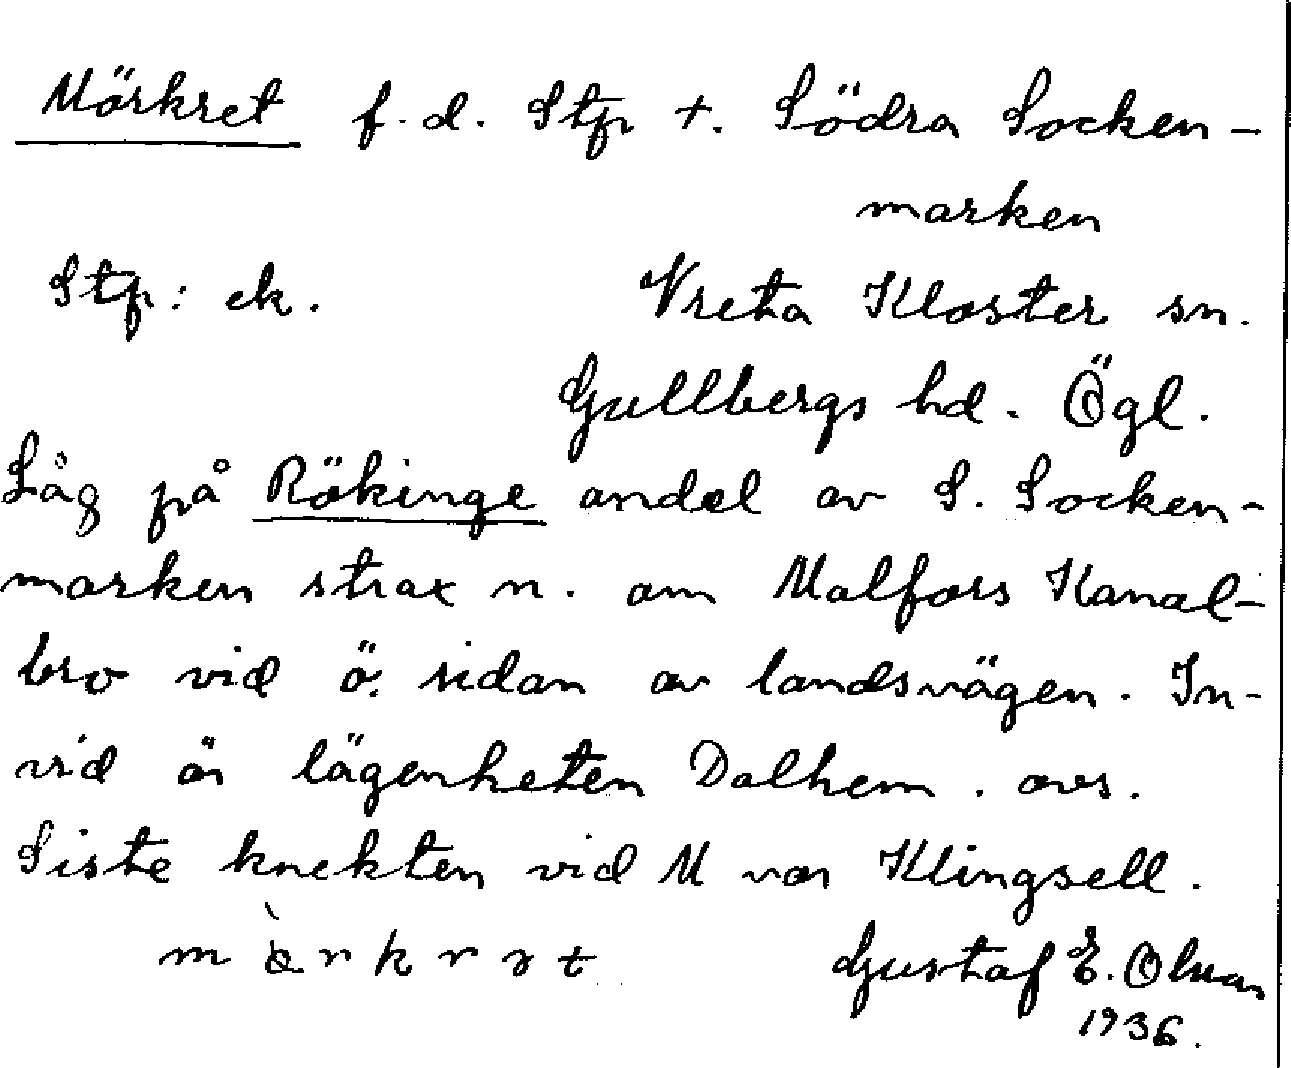 Mörkret f.d. Stp +. Södra Socken-
marken
Stp: ek. Vreta Kloster sn.
Gullbergs hd. Ögl.
Låg på Rökinge andel av S. Socken-
marken strax n. om Malfors Kanal-
bro vid ö. sidan av landsvägen. In-
vid är lägenheten Dalhem. avs.
Siste knekten vid M var Klingsell.
Gustaf E. Olsson
1936.